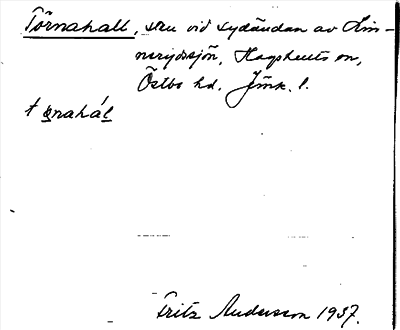 Törnahall, sten vid sydändan av Lin-
nerydssjön, Hagshults sn,
Östbo hd. Jönk. l.
t ö̱rnahál
Fritz Andersson 1937.